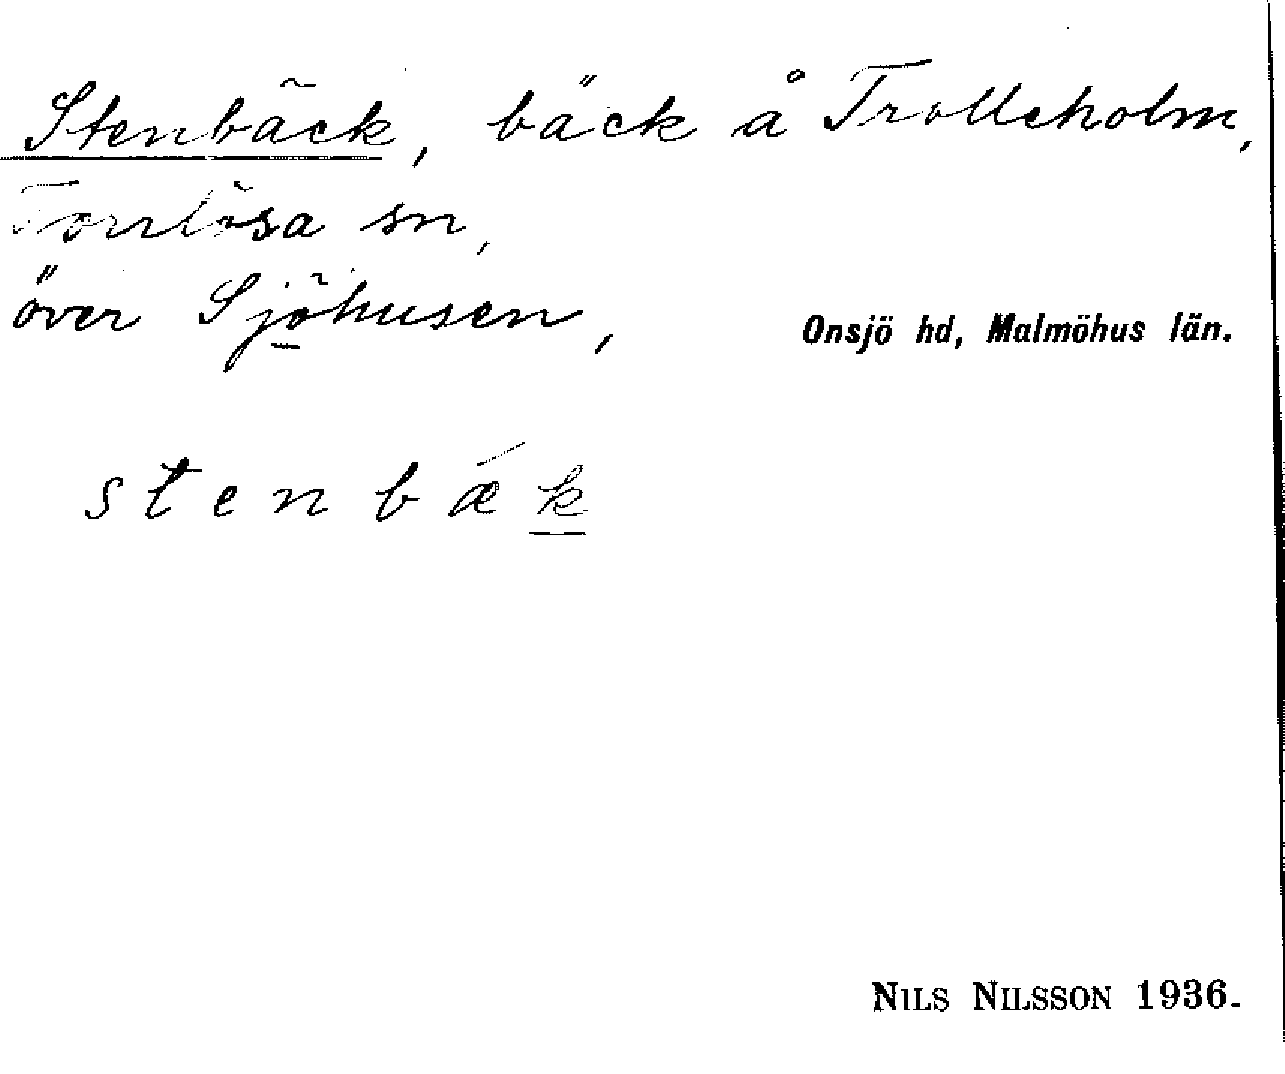 Stenbäck, bäck å Trolleholm,
Torrlösa sn,
över Sjöhusen,
Onsjö hd, Malmöhus län.
s t e n b ǽ k
NILS NILSSON 1936.